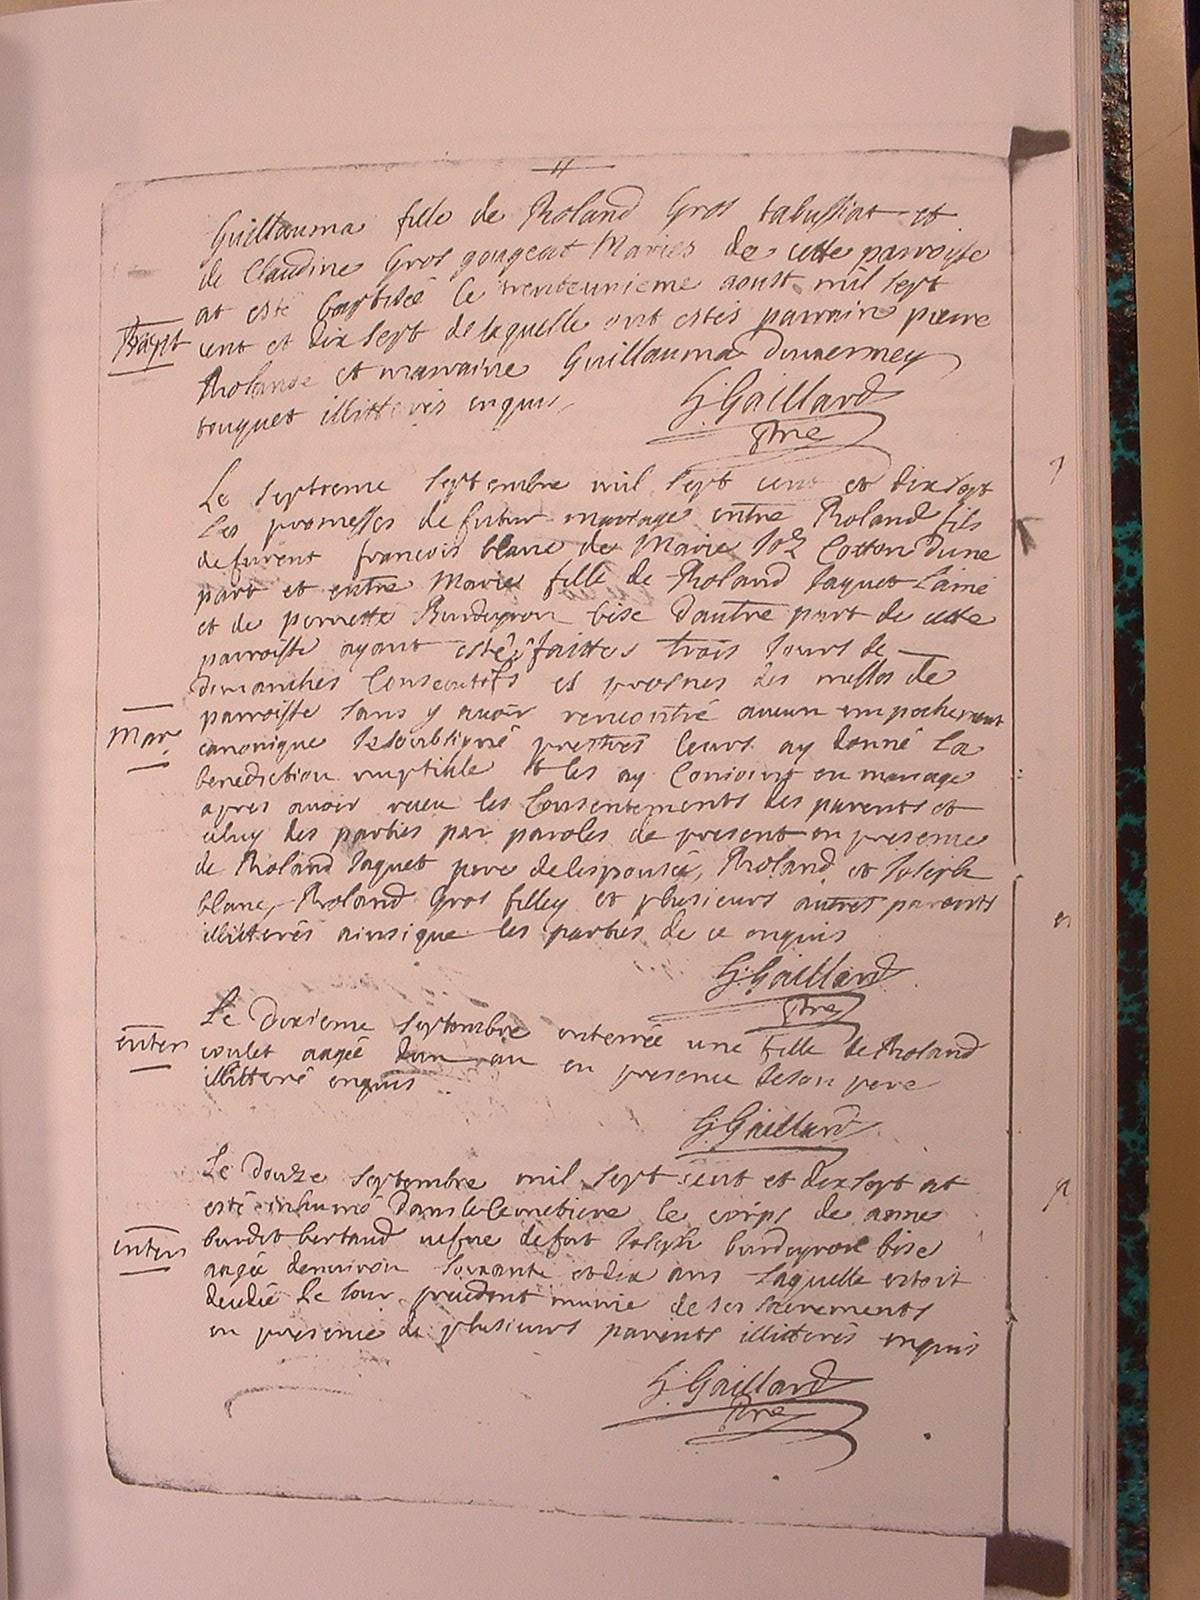 Guillauma fille de Roland Gros tabussiat et
de Claudine Gros gougeat Maries de cette parroisse
at esté baptisée le trenteunieme aoust mil sept
Bapt
cent et dix sept de laquelle ont estés parrain pierre
Rolande et marraine Guillauma
touquet illitterés enquis
G. Gaillard
ptre
Le septieme septembre mil sept cent et dix sept
les promesses de futur mariage entre Roland fils
de furent françois blanc de Marie Cotton dune
part et entre Marie fille de Roland Jaquet Lainé
et de pernette bise dautre part de cette
parroisse ayant esté faittes trois Jours de
dimanches Consecutifs es prosnes des messes de
parroisse sans y avoir rencontré aucun empechement
Mar
canonique Je soubsigné prestres leurs ay donné La
benediction nuptiale et les ay Conioint en mariage
apres avoir receu les Consentements des parents et
celuy des parties par paroles de present en presence
de Roland Jaquet pere de lespousée, Roland et Joseph
blanc, Roland Gros filley et plusieurs autres parents
illitterés ainsi que les parties de ce enquis
G. Gaillard
ptre
Le dixieme septembre enterrée une fille de Roland
enter
coulet aagée dun an en presence de son pere
illitteré enquis
G. Gaillard
Le douze septembre mil sept cent et dix sept at
esté inhumé dans le Cemetiere le corps de anne
enter
bertand de fut Joseph bise
aagée denviron soixante et dix ans laquelle estoit
decedée le Jour precedent munie de ses sacrements
en presence de plusieurs parents illitterés enquis
G. Gaillard
ptre